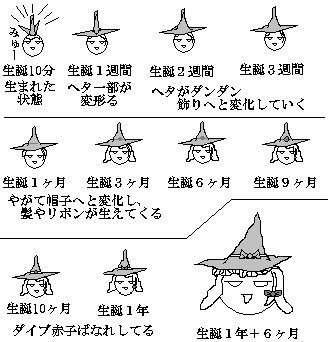 みゅー
生誕10分
生まれた
状態
生誕1週間
ヘタ一部が
変形る
生誕2週間
生誕3週間
ヘタがダンダン
飾りへと変化していく
生誕1ヶ月
生誕3ヶ月
生誕6ヶ月
生誕9ヶ月
やがて帽子へと変化し、
髪やリボンが生えてくる
生誕10ヶ月
生誕1年
ダイブ赤子ばなれしてる
生誕1年+6ヶ月